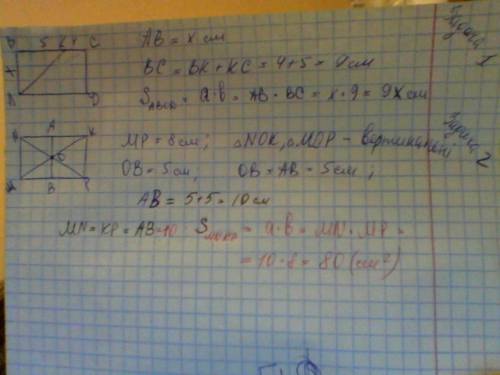 B 5 K 4 C
x
A D
AB = x см
BC = BK + KC = 4+5 = 9 см
S ABCD = a·b = AB · BC = x · 9 = 9x см
Задача 1
N A K
O
M B P
MP = 8 см; △NOK, △MOP – вертикальні
OB = 5 см, OB = AB - 5 см;
AB = 5+5 = 10 см
MN = KP = AB = 10 S MNKP = a·b = MN · MP =
= 10 · 8 = 80 (см²)
Задача 2